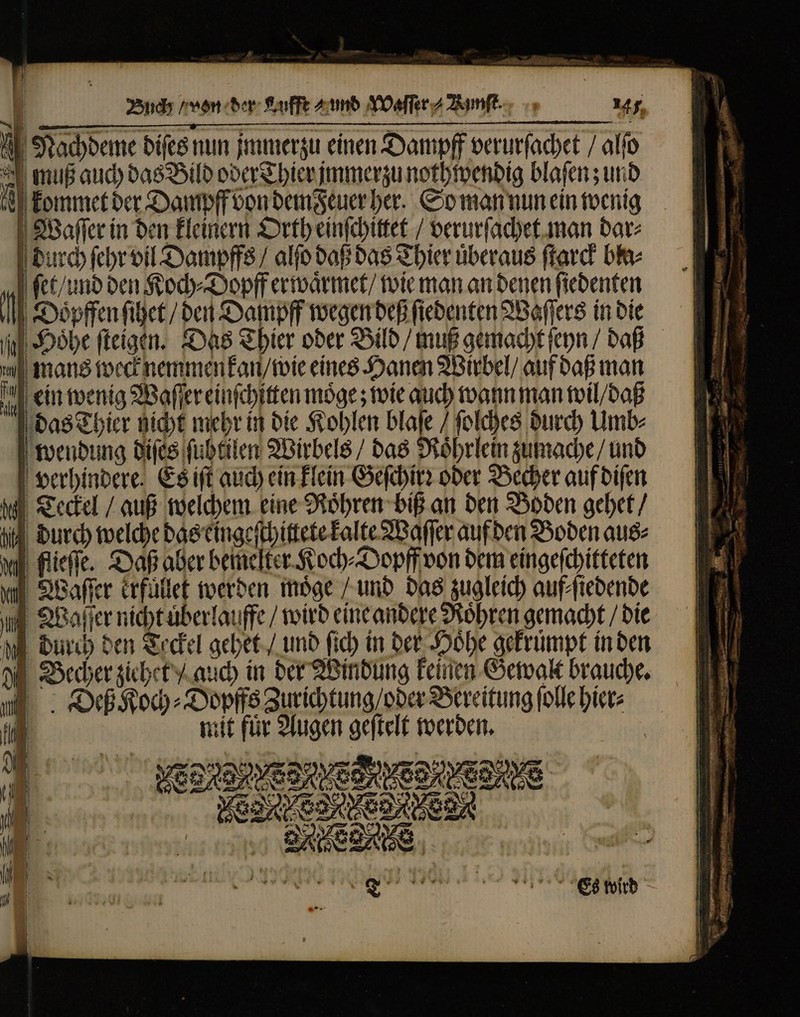 Buch / von der Lufft- und Wasser-Kunst. 145.
Nachdeme diſes nun jmmerzu einen Dampff verurſachet / alſo
muß auch das Bild oder Thier jmmerzu nothwendig blaſen; und
kommet der Dampff von dem Feuer her. So man nun ein wenig
Waſſer in den kleinern Orth einſchittet / verurſachet man dar⸗
durch ſehr vil Dampffs / alſo daß das Thier uͤberaus ſtarck bla⸗
ſet / und den Koch⸗Dopff erwaͤrmet / wie man an denen ſiedenten
Doͤpffen ſihet / den Dampff wegen deß ſiedenten Waſſers in die
Hoͤhe ſteigen. Das Thier oder Bild / muß gemacht ſeyn / daß
mans weck nemmen kan / wie eines Hanen Wirbel / auf daß man
ein wenig Waſſer einſchitten moͤge; wie auch wann man wil / daß
das Thier nicht mehr in die Kohlen blaſe / ſolches durch Umb⸗
wendung diſes ſubtilen Wirbels / das Roͤhrlein zumache / und
verhindere. Es iſt auch ein klein Geſchirꝛ oder Becher auf diſen
Teckel / auß welchem eine Roͤhren biß an den Boden gehet /
durch welche das eingeſchittete kalte Waſſer auf den Boden aus⸗
flieſſe. Daß aber bemelter Koch⸗Dopff von dem eingeſchitteten
Waſſer erfuͤllet werden moͤge / und das zugleich auf⸗ſiedende
Waſſer nicht uͤberlauffe / wird eine andere Roͤhren gemacht / die
durch den Teckel gehet / und ſich in der Hoͤhe gekruͤmpt in den
Becher ziehet / auch in der Windung keinen Gewalt brauche.
Deß Koch⸗Dopffs Zurichtung / oder Bereitung ſolle hier⸗
mit fuͤr Augen geſtelt werden.
T Es wird